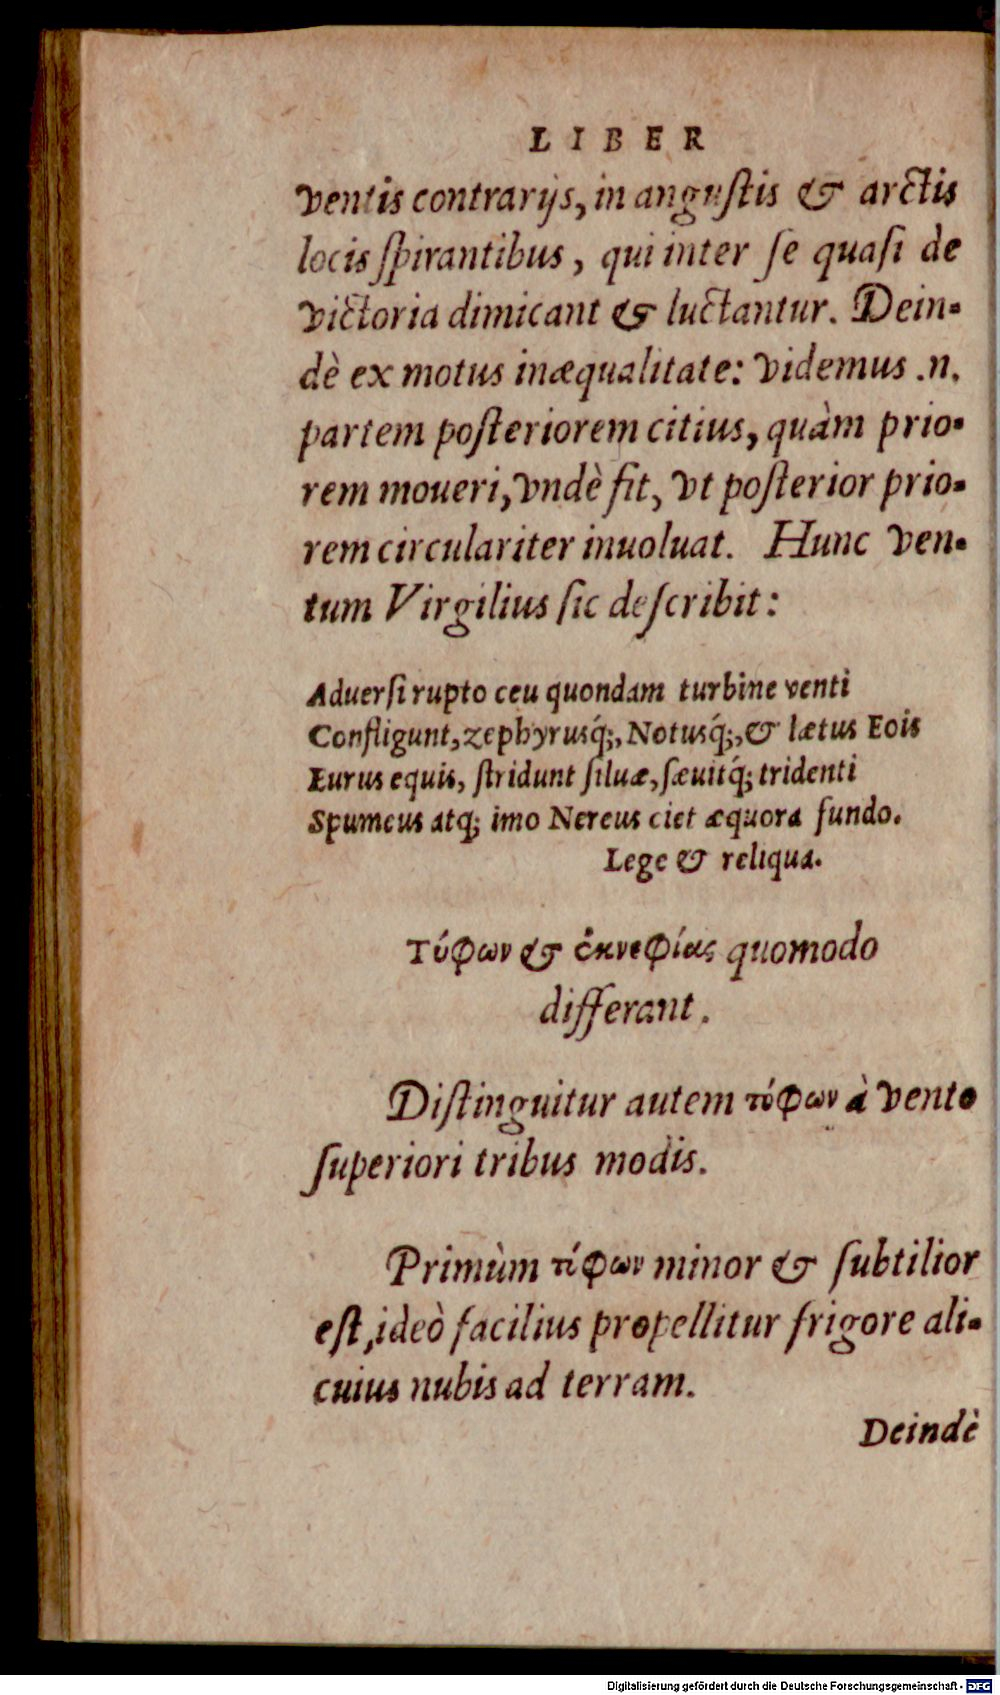 LIBER
ventis contrarijs, in anguſtis & arctis
locis ſpirantibus, qui inter ſe quaſi de
victoria dimicant & luctantur. Dein-
dè ex motus inæqualitate: videmus .n.
partem poſteriorem citius, quàm prio-
rem moueri, vndè fit, vt poſterior prio-
rem circulariter inuoluat. Hunc ven-
tum Virgilius ſic deſcribit:
Aduerſi rupto ceu quondam turbine venti
Confligunt, zephyrusq́;, Notusq́;, & lætus Eois
Eurus equis, ſtridunt ſiluæ, ſæuitq́; tridenti
Spumeus atq; imo Nereus ciet æquora fundo.
Lege & reliqua.
Τύφων & ἐκνεφίας quomodo
differant.
Diſtinguitur autem τύφων à vento
ſuperiori tribus modis.
Primùm τίφων minor & ſubtilior
eſt, ideò facilius propellitur frigore ali-
cuius nubis ad terram.
Deindè
Digitalisierung gefördert durch die Deutsche Forschungsgemeinschaft - DFG